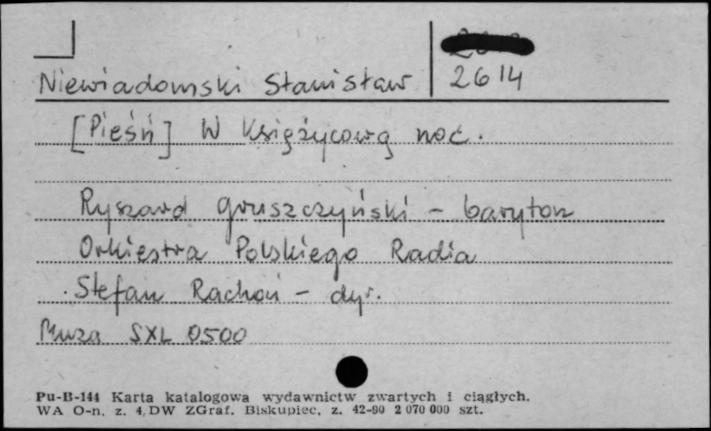 Niewiadomski Stanisław
2614
[Pieśń] W księżycową noc.
Ryszard Gruszczyński - baryton
Orkiestra Polskiego Radia
Stefan Rachoń - dyr.
Muza SXL 0500
Pu-B-144 Karta katalogowa wydawnictw zwartych i ciągłych.
WA O-n. z. 4, DW ZGraf. Biskupiec, z. 42-90 2 070 000 szt.